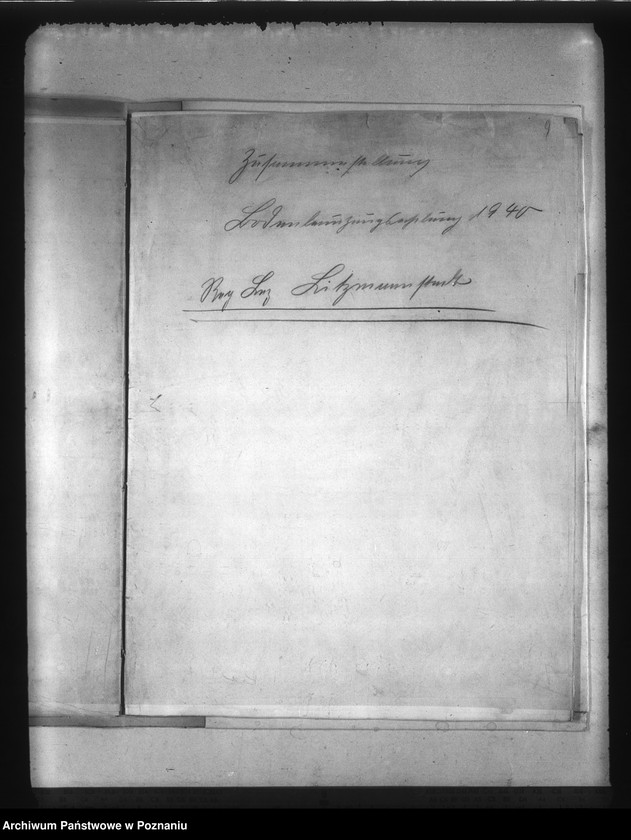 9
Zusammenstellung
Bodenbenutzung 1940
Reg Bez Litzmannstadt
Archiwum Państwowe w Poznaniu